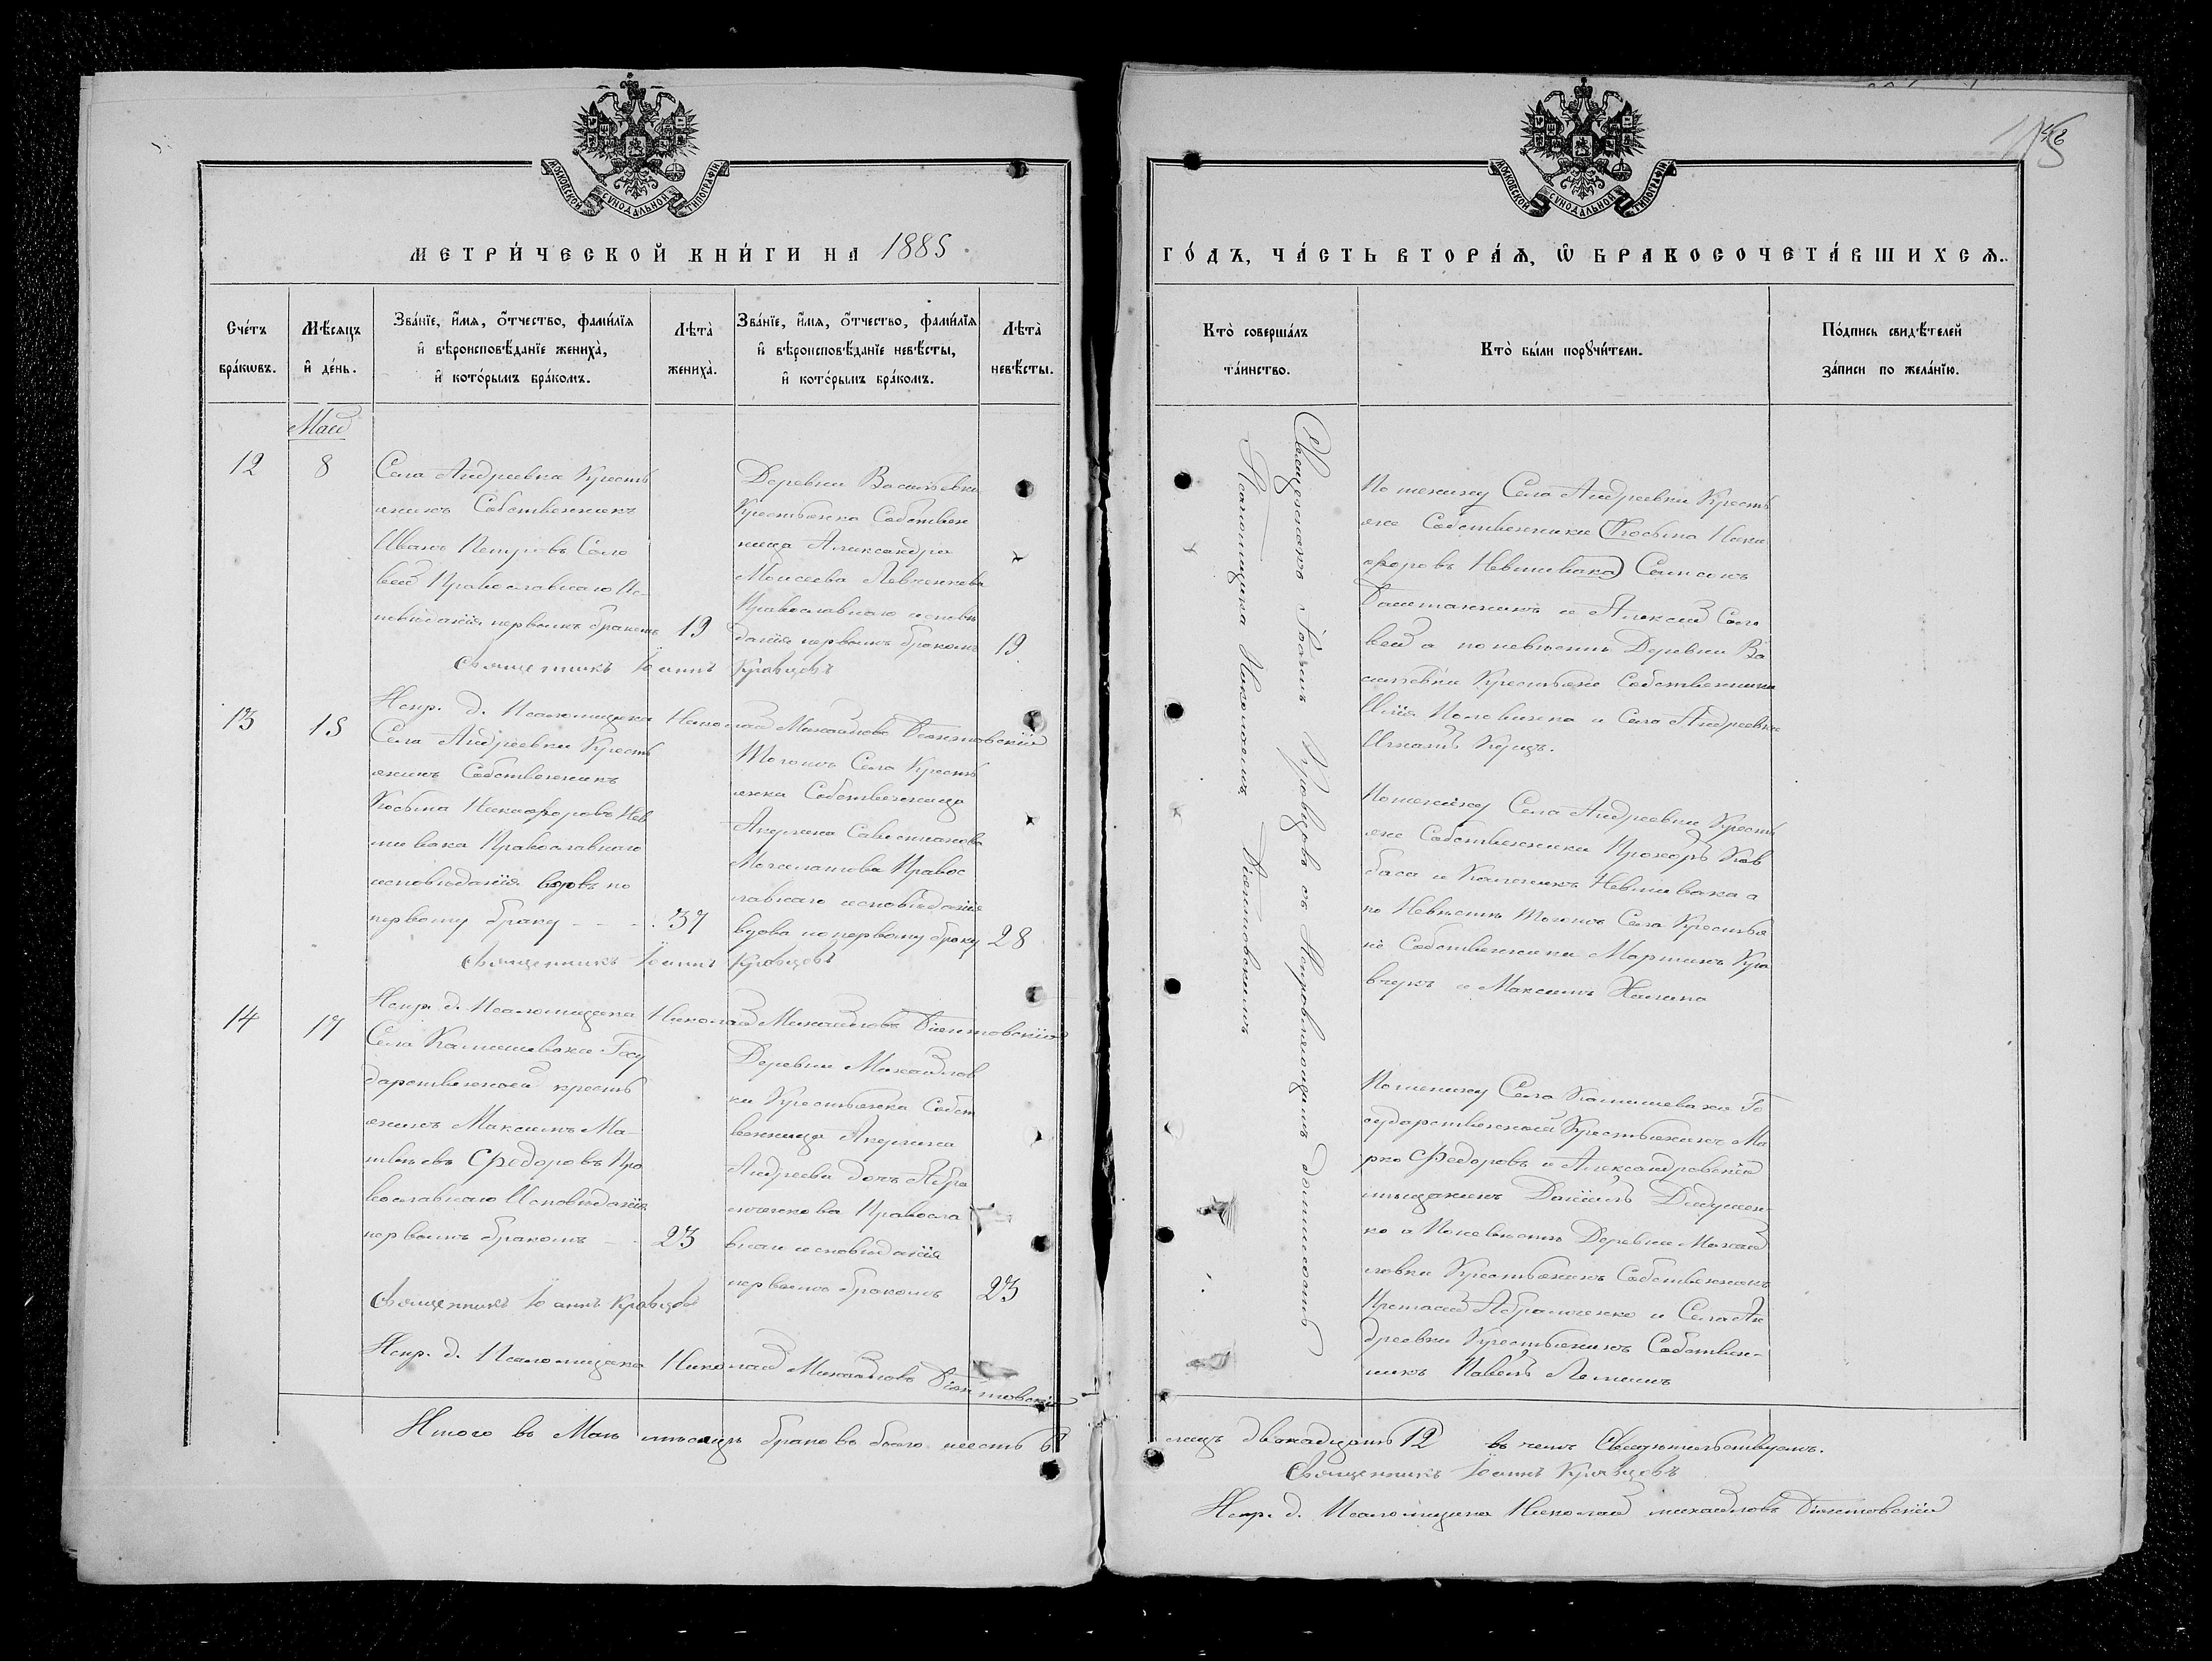 МОСКОВСКОЙ СѴНОДАЛЬНОЙ ТИПОГРАФІИ
МЕТРИ́ЧЕСКОЙ КНИ́ГИ НА 1885
Сче́тъ бра́кωвъ.
Мѣ́сяцъ и҆ де́нь.
Зва́нїе, и҆́мя, ѻ҆́тчество, фами́лїя
и҆ вѣроисповѣ́данїе жениха̀,
и҆ кото́рымъ бра́комъ.
Лѣта̀ жениха̀.
Зва́нїе, и҆́мя, ѻ҆́тчество, фами́лїя
и҆ вѣроисповѣ́данїе невѣ́сты,
и҆ кото́рымъ бра́комъ.
Лѣта̀ невѣ́сты.
Май
12
8
Села Андреевки Кресть
янинъ Собственникъ
Иванъ Петровъ Соло
вей Православнаго Ис-
повѣданія первымъ бракомъ
19
Деревни Васильевки
Крестьянка Собствен
ница Александра
Моисеева Левченкова
Православнаго исповѣ
данія первымъ бракомъ
19
Священникъ Іоаннъ Кравцовъ
Испр. д. Псаломщика Николай Михайловъ Діяктовскій
13
15
Села Андреевки Кресть
янинъ Собственникъ
Косьма Никифоровъ Нев
шивака Православнаго
исповѣданія вдовъ по
первому браку - - -
37
Тогоже Села Кресть
янка Собственница
Акулина Савостианова
Правос
лавнаго исповѣданія
вдова по первому браку
28
Священникъ Іоаннъ Кравцовъ
Испр. д. Псаломщика Николай Михайловъ Діяктовскій
14
17
Села Камышевахи Госу
дарственный кресть
янинъ Максимъ Ма-
твѣевъ Федоровъ Пра
вославнаго Исповѣданія
первымъ бракомъ -
23
Деревни Михайлов
ки Крестьянка Собст
венница Акулина
Андреева дочь Абра
мченкова Правосла
внаи исповѣданія
первымъ бракомъ
23
Священникъ Іоаннъ Кравцовъ
Испр. д. Псаломщика Николай Михайловъ Діяктовскій
Итого въ Маѣ мѣсяцѣ браковъ было шесть 6
МОСКОВСКОЙ СѴНОДАЛЬНОЙ ТИПОГРАФІИ
ГО́ДЪ, ЧА́СТЬ ВТОРА́Я, Ѡ҆ БРАКОСОЧЕТА́ВШИХСЯ.
Кто̀ соверша́лъ та́инство.
Кто̀ бы́ли порꙋчи́тели.
По́дпись свидѣ́телей
за́писи по жела́нїю.
Священникъ Іоаннъ Кравцовъ съ Исправляющимъ должность
Псаломщика Николаемъ Діяктовскимъ
По жениху Села Андреевки Кресть
яне Собственники (Косьма Ники
форовъ Невшивака) Самсонъ
Баштанникъ и Алексей Соло
вей а по невѣстѣ Деревни Ва
сильевки Крестьяне Собственники
Илія Половинка и Села Андреевки
Игнатъ Куцъ.
По жениху Села Андреевки Кресть
яне Собственники Прохоръ Ков
баса и Калиникъ Невшивака а
по Невѣстѣ Тогоже Села Крестья
не Собственники Мартинъ Кра
вчукъ и Максимъ Халина
По жениху Села Камышевахи Го
сударственный Крестьянинъ Ма
рко Федоровъ и Александровскій
мѣщанинъ Даніилъ Дидушен-
ко а По невѣстѣ Деревни Михай
ловки Крестьянинъ Собственникъ
Протасей Абрамченко и Села Ан
дреевки Крестьянинъ Собствен-
никъ Павелъ Лемешъ
двенадцать 12 въ чемъ Свидѣтельствуемъ.
Священникъ Іоаннъ Кравцовъ
Испр. д. Псаломщика Николай михайловъ Діяктовскій